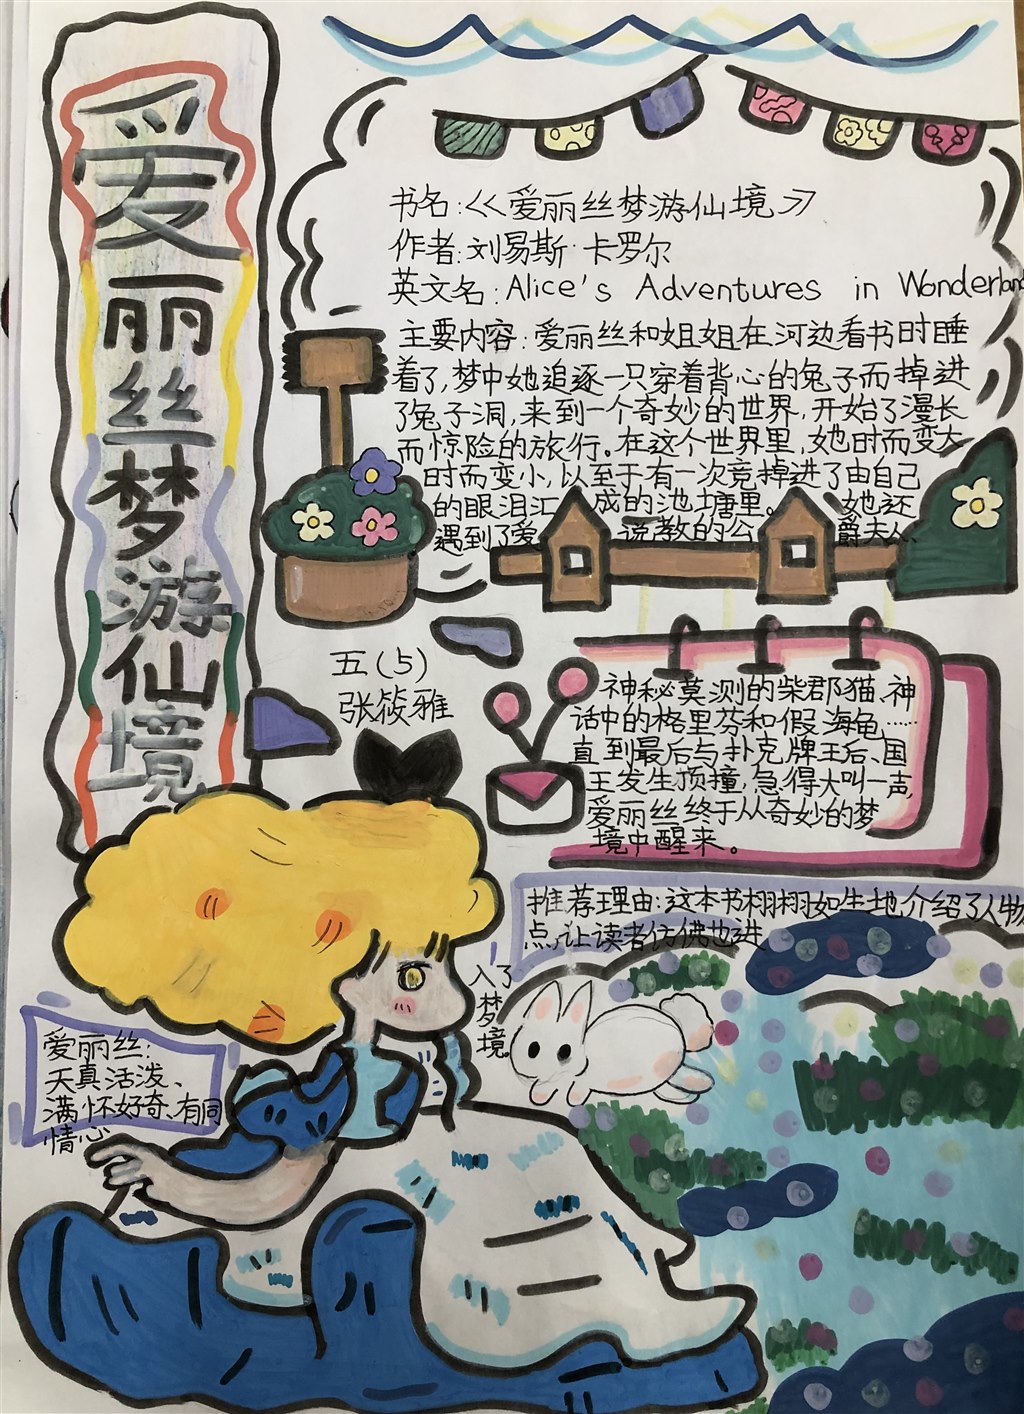 爱丽丝梦游仙境
书名:《爱丽丝梦游仙境》
作者:刘易斯·卡罗尔
英文名:Alice's Adventures in Wonderland
主要内容:爱丽丝和姐姐在河边看书时睡
着了,梦中她追逐一只穿着背心的兔子而掉进
了兔子洞,来到一个奇妙的世界,开始了漫长
而惊险的旅行。在这个世界里,她时而变大
时而变小,以至于有一次竟掉进了由自己
的眼泪汇成的池塘里。她还
遇到了爱说教的公爵夫人、
五(5)
张筱雅
神秘莫测的柴郡猫、神
话中的格里芬和假海龟……
直到最后与扑克牌王后、国
王发生顶撞,急得大叫一声,
爱丽丝终于从奇妙的梦
境中醒来。
推荐理由:这本书栩栩如生地介绍了人物
点,让读者仿佛也进
入了
梦
境。
爱丽丝:
天真活泼、
满怀好奇、有同
情心